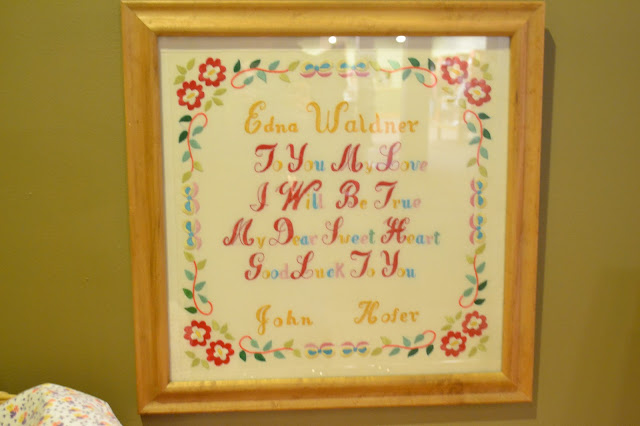 Edna Waldner
To You My Love
I Will Be True
My Dear Sweet Heart
Good Luck To You
John Hofer